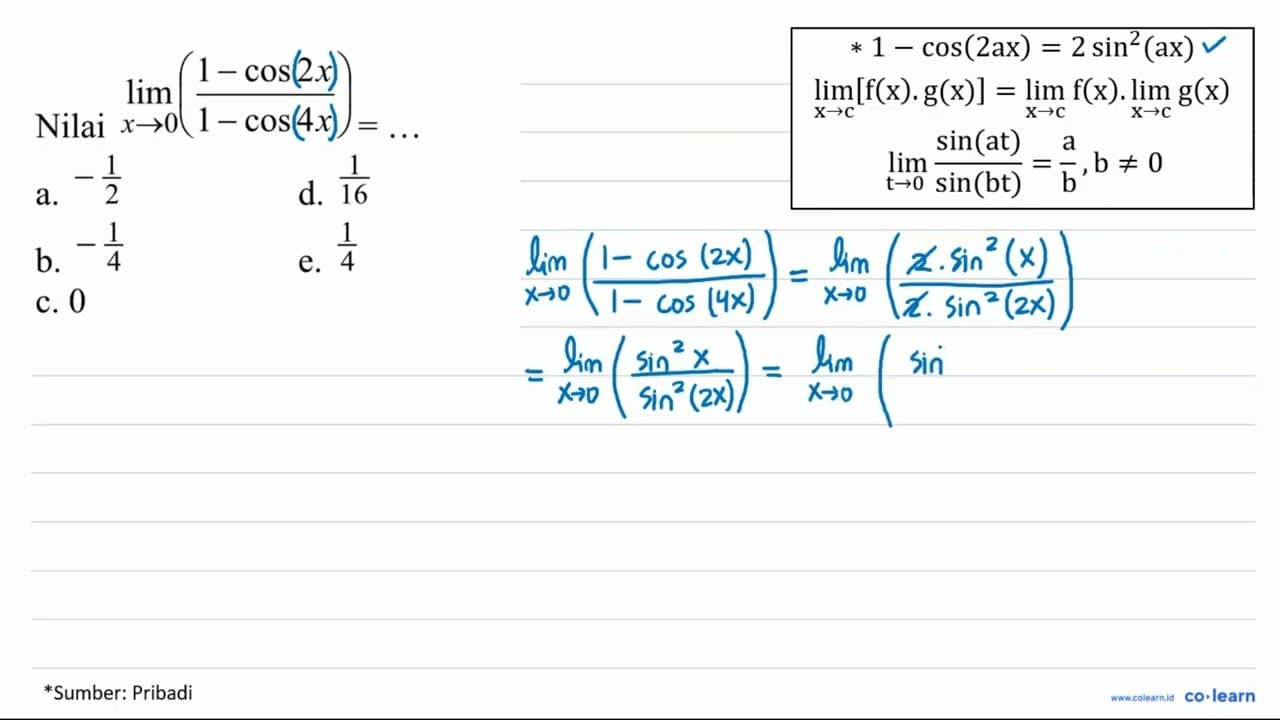 Nilai lim x→0 ( (1 − cos(2x)) / (1 − cos(4x)) ) = ...
a. −1/2
b. −1/4
c. 0
d. 1/16
e. 1/4
* 1 − cos(2ax) = 2 sin²(ax) ✓
lim x→c [f(x). g(x)] = lim x→c f(x). lim x→c g(x)
lim t→0 sin(at)/sin(bt) = a/b , b ≠ 0
lim x→0 ( (1 − cos (2x)) / (1 − cos (4x)) ) = lim x→0 ( (2. sin² (x)) / (2. sin² (2x)) )
= lim x→0 ( sin² x / sin² (2x) ) = lim x→0 ( sin
*Sumber: Pribadi
www.colearn.id co·learn